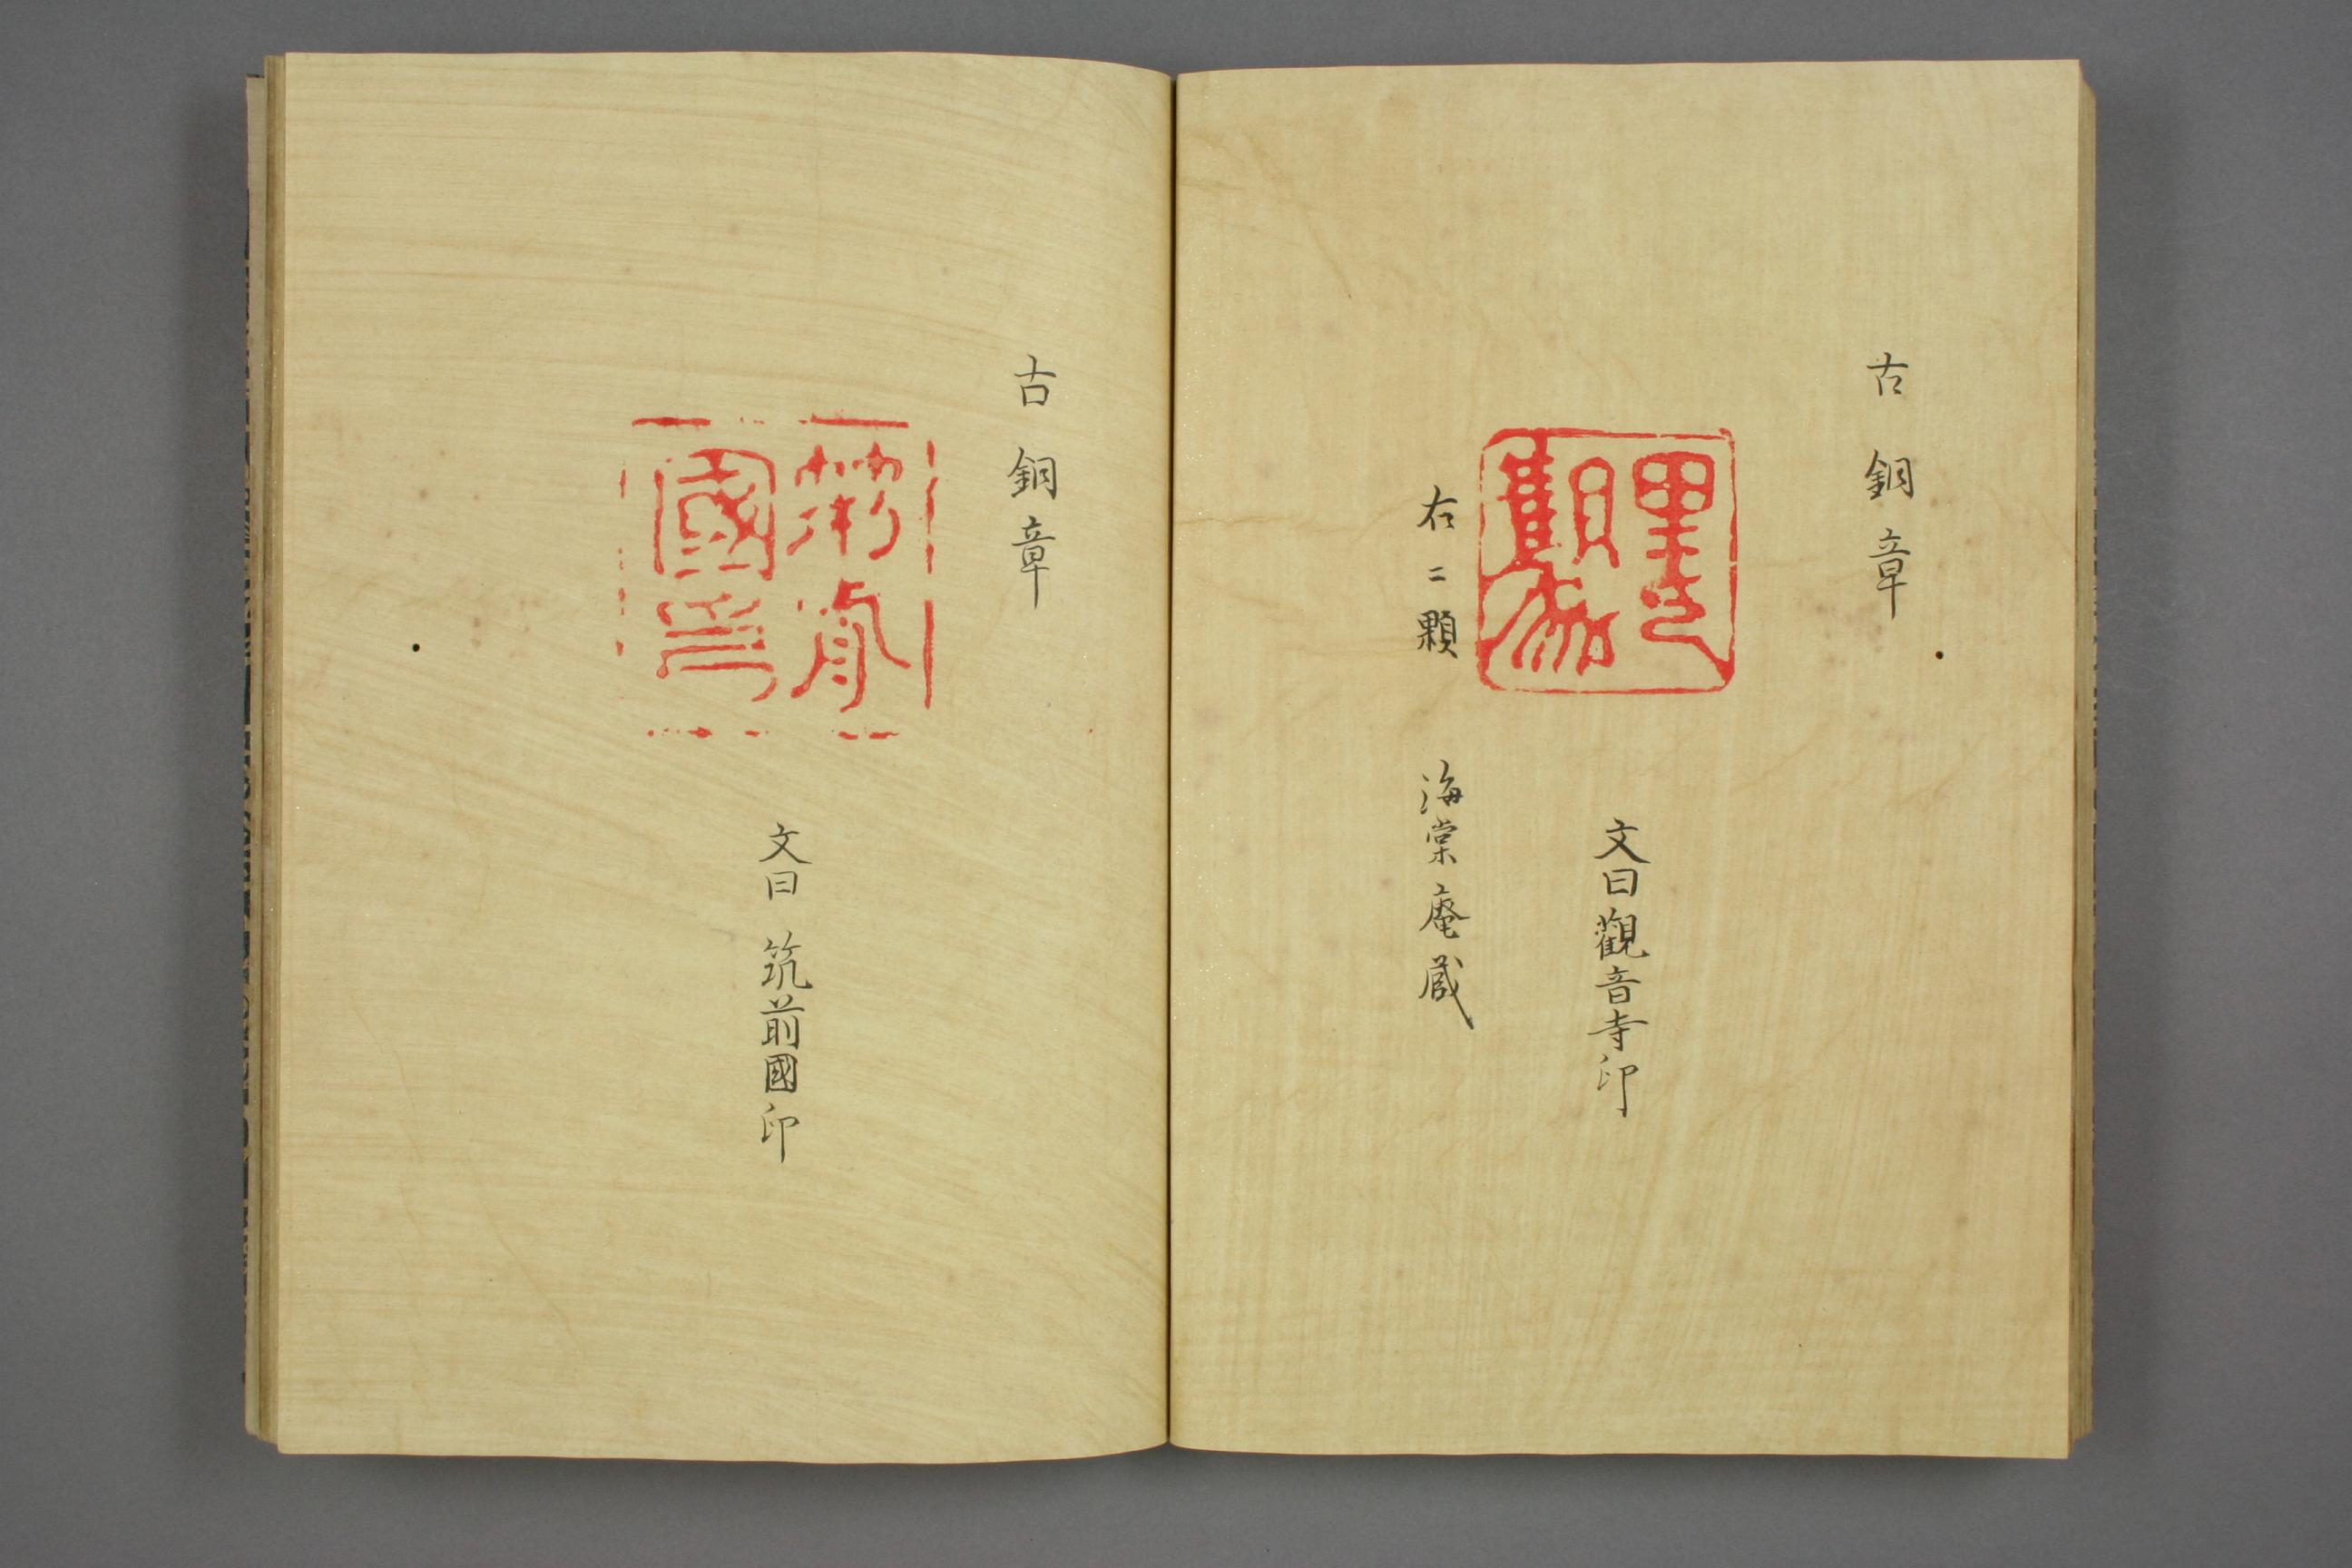 古銅章
文曰觀音寺印
右二顆 海棠庵蔵
古銅章
筑前
國印
文曰 筑前國印